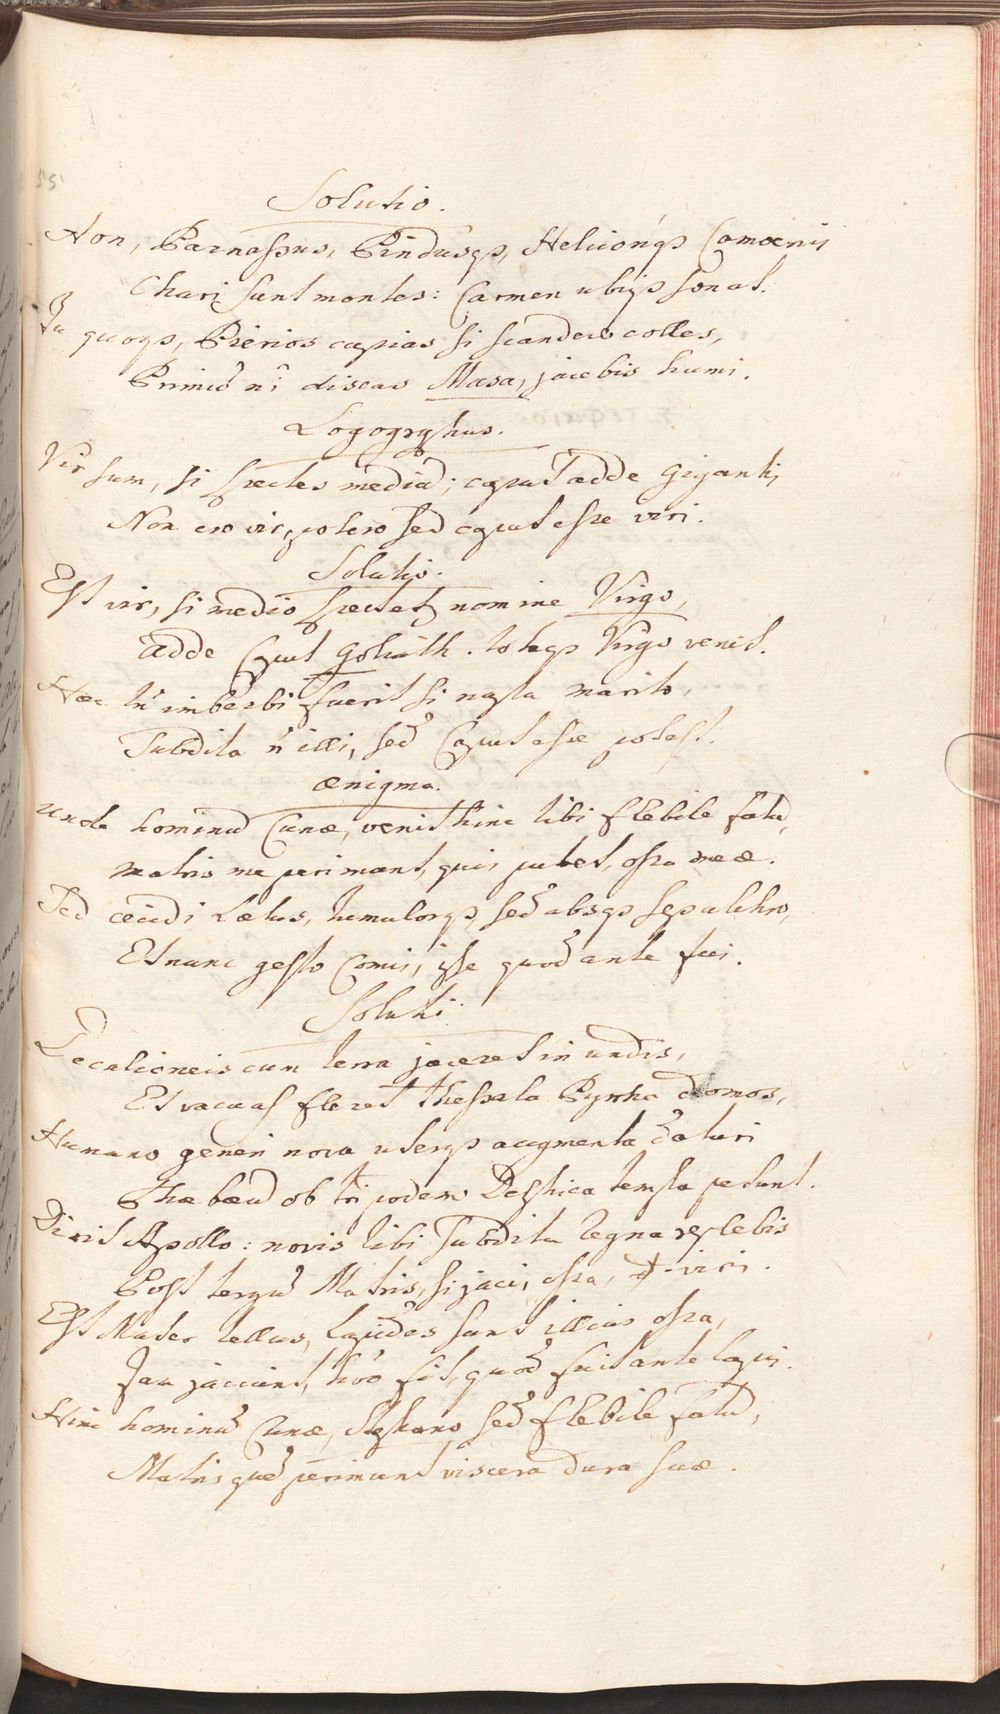 Solutio.
Non, Parnassus, Pindusqs, Heliconqs Camœnis
Chari sunt montes: Carmen ubiqs sonat.
Tu quoqs, Pierios cupias si scandere colles,
Primū nî discas Musa, jacebis humi.
Logogryphus.
Vir sum, si spectes mediū; caput adde Giganti,
Non ero vir, potero sed caput esse viri.
Solutio.
Est vir, si medio spectet nomine Virgo,
adde Caput Goliath. totaqs Virgo venit.
Hæc tn̄ imberbi fuerit si nupta marito,
Subdita n̄ illi, sed Caput esse potest.
ænigma.
Unde hominū Cunæ, venit hinc tibi flebile fatū,
matris me perimant, quis putet, ossa meæ.
Sed cecidi Lætus, tumulorqs, sed absqs sepulchro,
Et nunc gesto Comis, iste quod ante fui.
Soluti
Decalioneis cum terra jaceret in undis,
Et vacuas fleret thessala Pyrrha domos,
Humano generi nova uterqs augmenta daturi
Phæbæū ob tripodem Delphica templa petunt.
Dixit Apollo: novis tibi Subdita Regna replebis
Post tergū Matris, si jaci, ossa, viri.
Est Mater tellus, lapides sunt illius ossa,
Jam jaciunt, homo fit, quod fuit ante lapis.
Hinc hominū Cunæ, Stephano sed flebile fatū,
Matris quē perimunt viscera dura suæ.